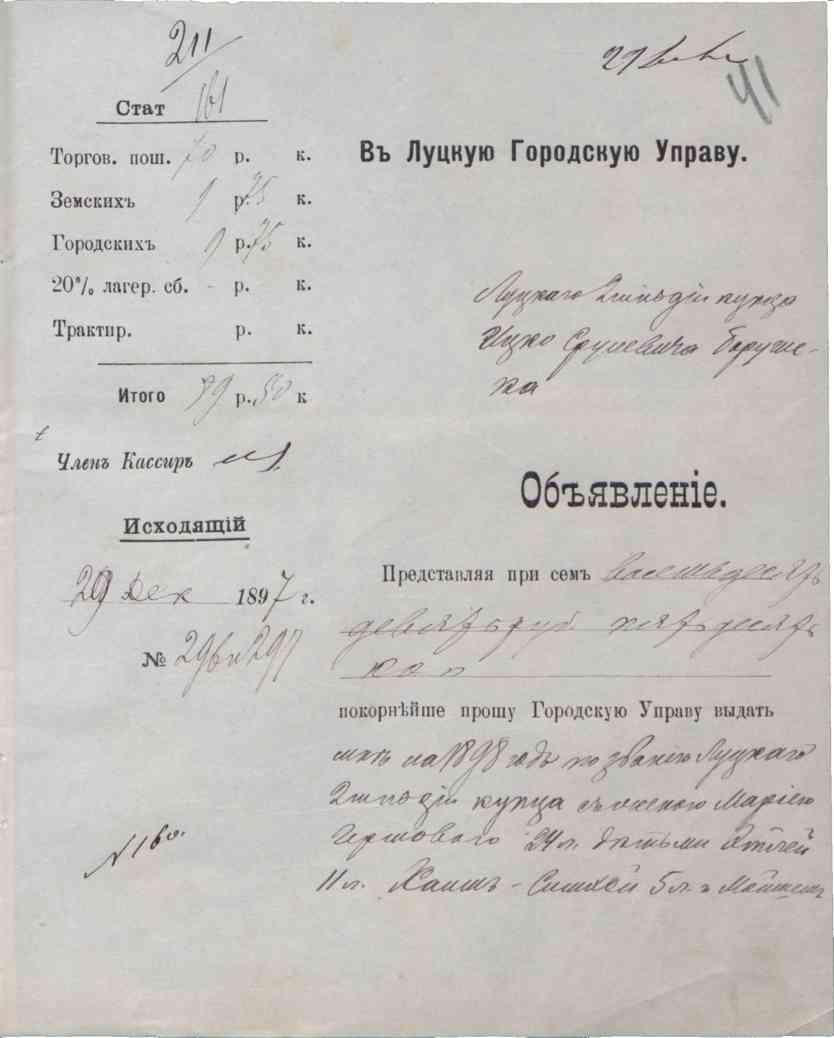 211
161
Стат
Торгов. пош. 70 р. к.
Земскихъ 9 р. 75 к.
Городскихъ 9 р. 75 к.
20% лагер. сб. - р. к.
Трактир. р. к.
Итого 89 р. 50 к
Членъ Кассиръ
Исходящій
29 Дек 1897 г.
№ 296 и 297
N 160.
29
41
Въ Луцкую Городскую Управу.
Луцкаго 2 гильдіи купца
Ицко Срулевича
Объявленіе.
Представляя при семъ восемьдесятъ
девять руб пятьдесятъ
коп
покорнѣйше прошу Городскую Управу выдать
мнѣ на 1898 годъ по званію Луцкаго
2 гильдіи купца съ женою Маріею
24 л. дѣтьми
11 л. Хаимъ - Симхой 5 л. и